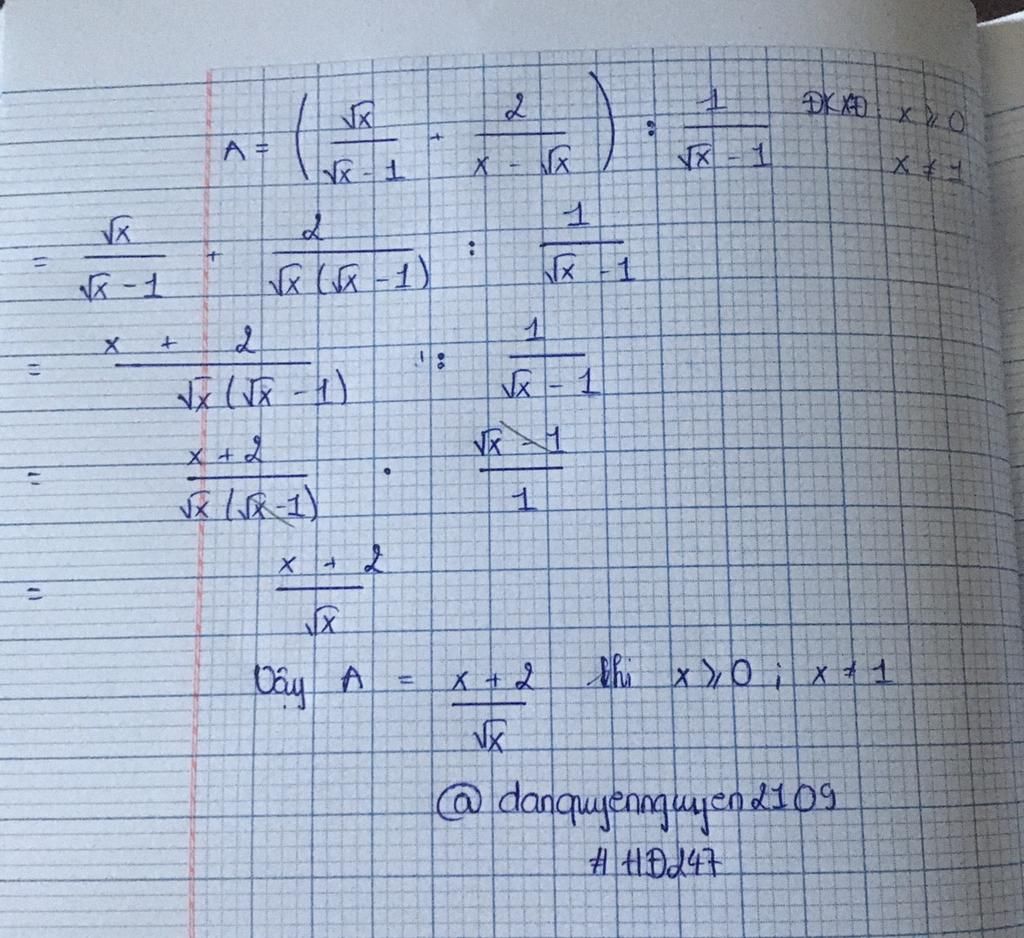 A = ( √x / (√x - 1) + 2 / (x - √x) ) : 1 / (√x - 1) ĐKXĐ: x ≥ 0
x ≠ 1
= √x / (√x - 1) + 2 / (√x (√x - 1)) : 1 / (√x - 1)
= (x + 2) / (√x (√x - 1)) : 1 / (√x - 1)
= (x + 2) / (√x (√x - 1)) . (√x - 1) / 1
= (x + 2) / √x
Vậy A = (x + 2) / √x khi x ≥ 0 ; x ≠ 1
@danquyennguyen2109
#HD247